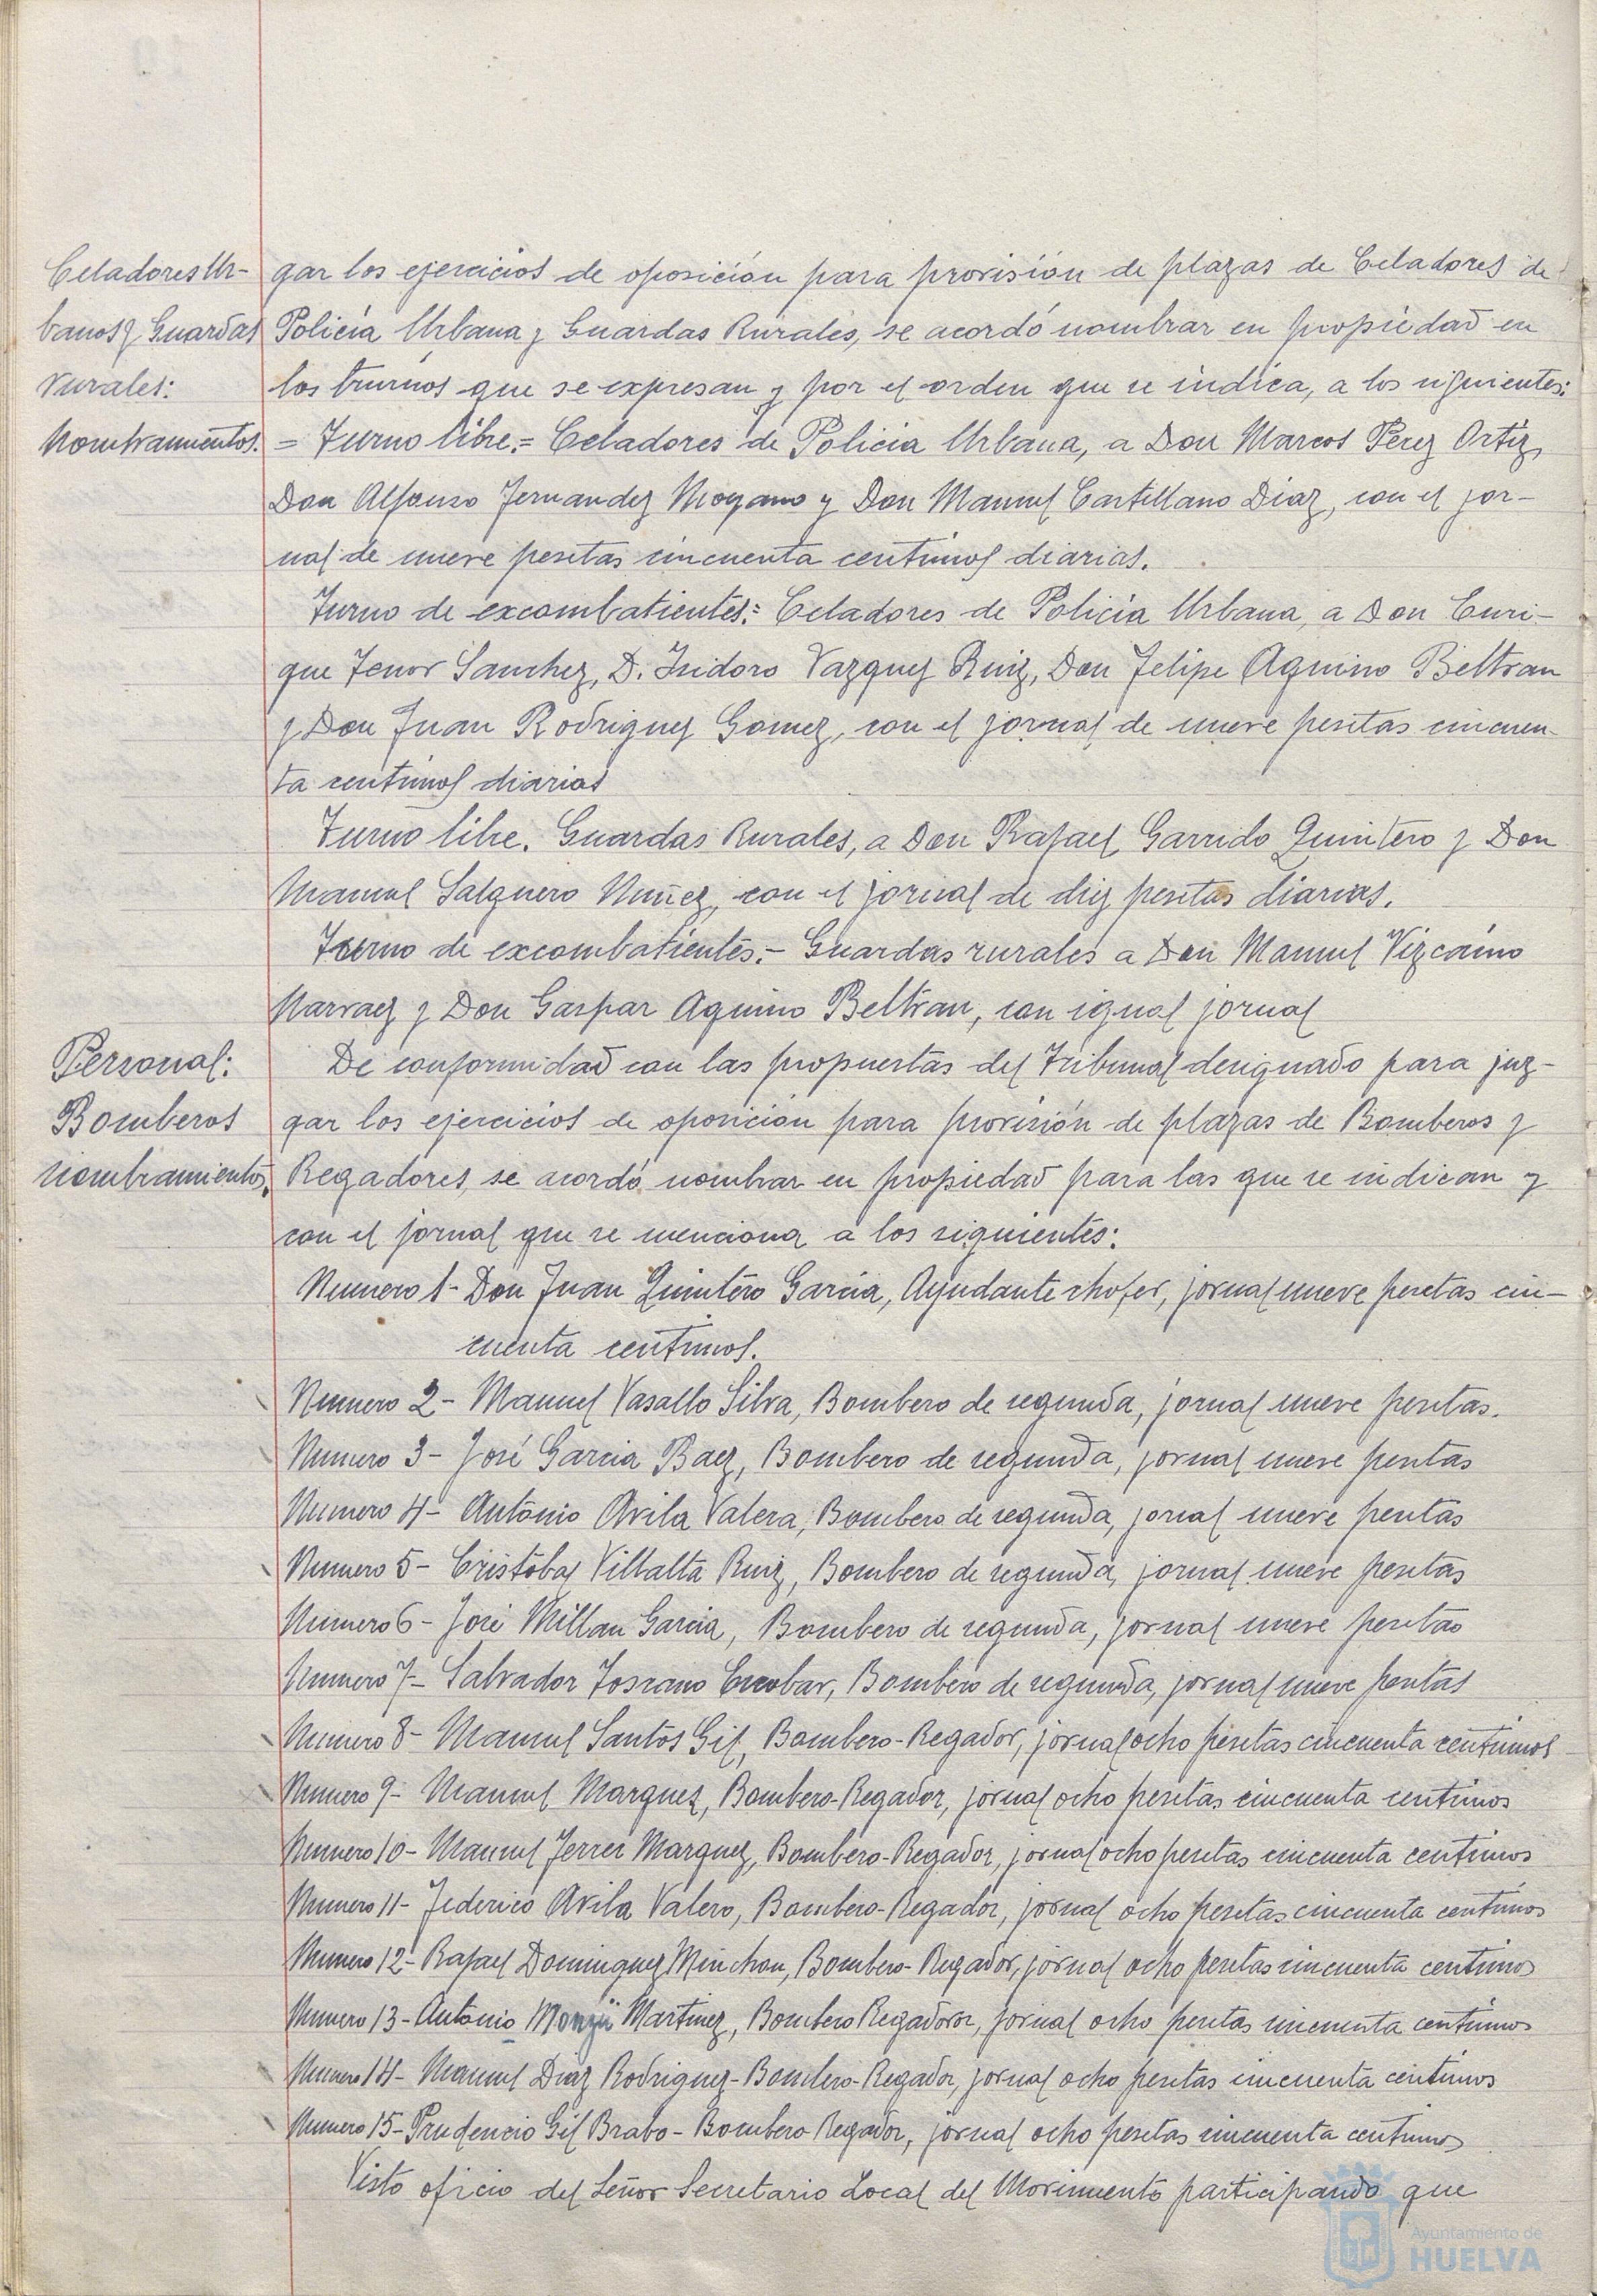 Celadores Ur-
banos y Guardas
rurales:
Nombramientos.
gar los ejercicios de oposición para provisión de plazas de Celadores de
Policia Urbana y Guardas Rurales, se acordó nombrar en propiedad en
los turnos que se expresan y por el orden que se indica, a los siguientes:
= Turno libre.= Celadores de Policia Urbana, a Don Marcos Perez Ortiz,
Don Alfonso Fernandez Moyano y Don Manuel Castellano Diaz, con el jor-
nal de nueve pesetas cincuenta centimos diarias.
Turno de excombatientes: Celadores de Policía Urbana, a Don Enri-
que Tenor Sanchez, D. Isidoro Vazquez Ruiz, Don Felipe Aquino Beltran
y Don Juan Rodriguez Gomez, con el jornal de nueve pesetas cincuen-
ta centimos diarias
Turno libre. Guardas Rurales, a Don Rafael Garrido Quintero y Don
Manuel Salguero Nuñez, con el jornal de diez pesetas diarias.
Turno de excombatientes.- Guardas rurales a Don Manuel Vizcaino
Narvaez y Don Gaspar Aquino Beltran, con igual jornal
Personal:
Bomberos
nombramientos.
De conformidad con las propuestas del Tribunal designado para juz-
gar los ejercicios de oposición para provisión de plazas de Bomberos y
Regadores, se acordó nombrar en propiedad para las que se indican y
con el jornal que se menciona a los siguientes:
Numero 1- Don Juan Quintero Garcia, Ayudante chofer, jornal nueve pesetas cin-
cuenta centimos.
Numero 2- Manuel Vasallo Silva, Bombero de segunda, jornal nueve pesetas.
Numero 3- José Garcia Baez, Bombero de segunda, jornal nueve pesetas
Numero 4- Antonio Avila Valera, Bombero de segunda, jornal nueve pesetas
Numero 5- Cristobal Villalta Ruiz, Bombero de segunda, jornal nueve pesetas
Numero 6- José Millan Garcia, Bombero de segunda, jornal nueve pesetas
Numero 7- Salvador Toscano Escobar, Bombero de segunda, jornal nueve pesetas
Numero 8- Manuel Santos Gil, Bombero-Regador, jornal ocho pesetas cincuenta centimos
Numero 9- Manuel Marquez, Bombero-Regador, jornal ocho pesetas cincuenta centimos
Numero 10- Manuel Ferrer Marquez, Bombero-Regador, jornal ocho pesetas cincuenta centimos
Numero 11- Federico Avila Valero, Bombero-Regador, jornal ocho pesetas cincuenta centimos
Numero 12- Rafael Dominguez Minchon, Bombero-Regador, jornal ocho pesetas cincuenta centimos
Numero 13- Antonio Martinez, Bombero Regador, jornal ocho pesetas cincuenta centimos
Numero 14- Manuel Diaz Rodriguez- Bombero-Regador, jornal ocho pesetas cincuenta centimos
Numero 15- Prudencio Gil Brabo- Bombero Regador, jornal ocho pesetas cincuenta centimos
Visto oficio del Señor Secretario Local del Movimiento participando que
Ayuntamiento de
HUELVA